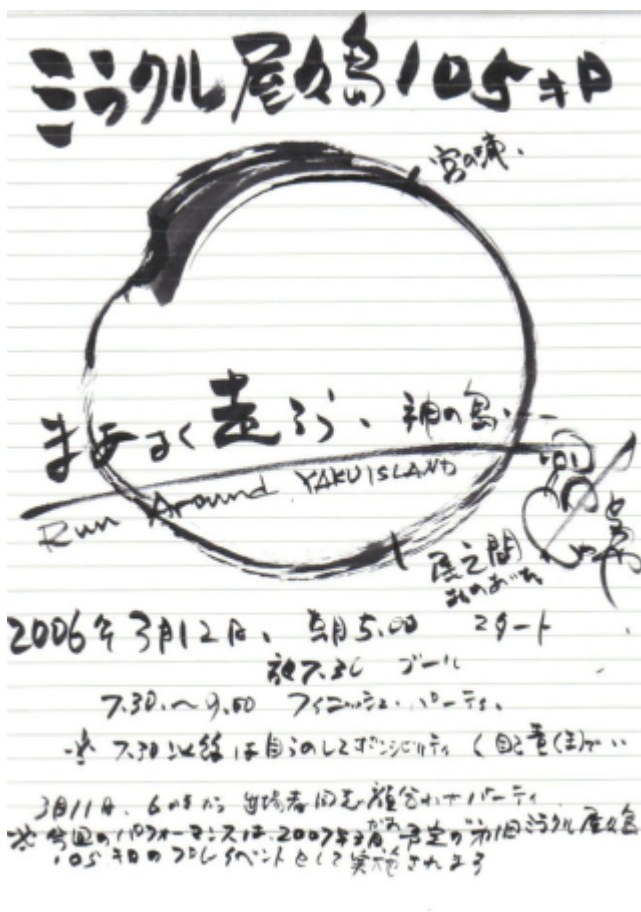 ミラクル屋久島105キロ
宮の浦.
まあるく走ろう、神の島…
Run Around YAKU ISLAND
尾之間
おのあいだ
2006年3月12日、朝5.00 スタート
夜7.30 ゴール
7.30.〜9.00 フィニッシュ・パーティ、
※ 7.30以緑は自らのレスポンシビリティ く自己責任で…
3月11日、6時から 出場者同志顔合わせパーティ
※今回のパフォーマンスは、2007年3月予定の第1回ミラクル屋久島
105キロのプレイベントとして実施されます